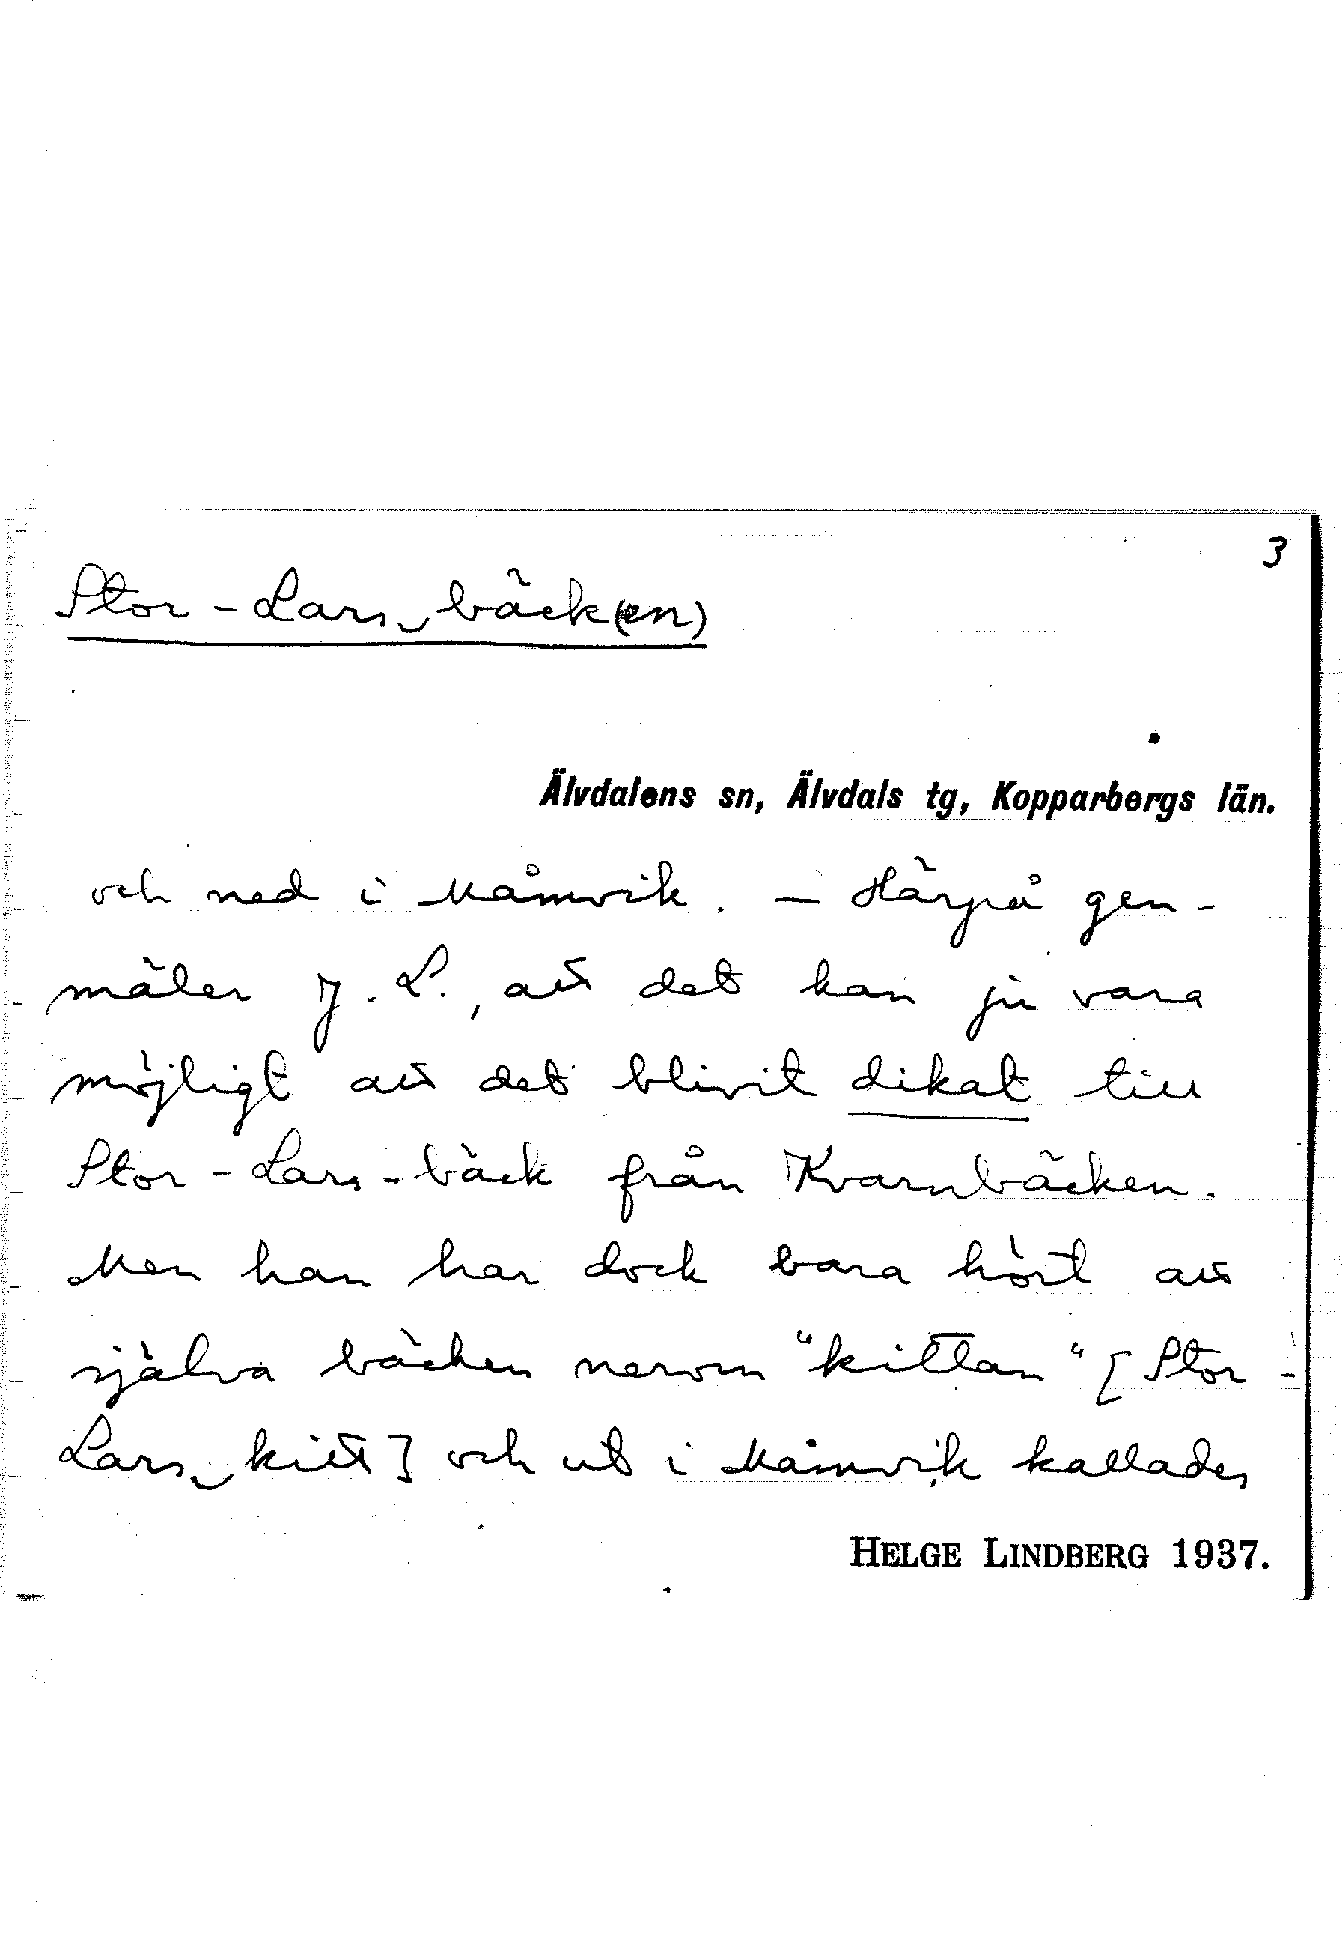 3
Stor-Lars‿bäck(en)
Älvdalens sn, Älvdals tg, Kopparbergs län.
och ned i Måmvik. – Härpå gen-
mäler J. L., att det kan ju vara
möjligt att det blivit dikat till
Stor-Lars-bäck från Kvarnbäcken.
Men han har dock bara hört att
själva bäcken nerom "kittlan" [Stor-
Lars‿kitt] och ut i Måmvik kallades
HELGE LINDBERG 1937.